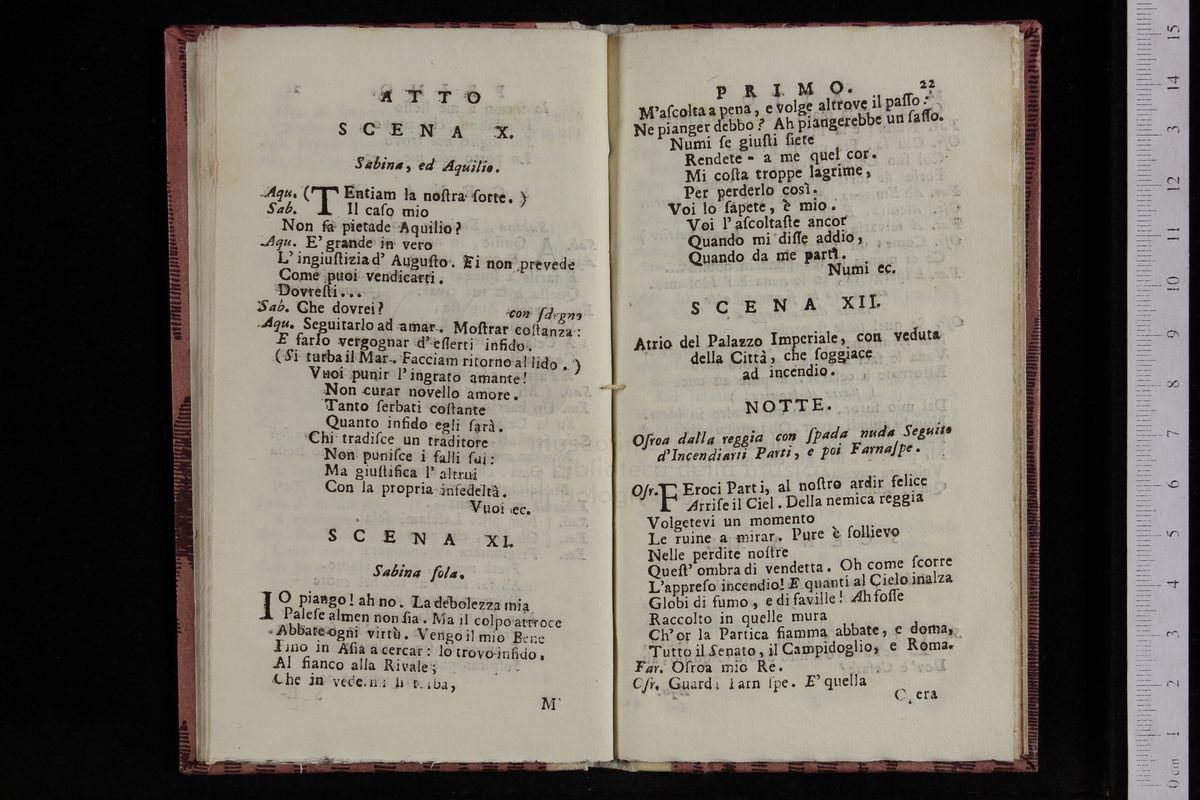 ATTO
SCENA X.
Sabina, ed Aquilio.
Aqu. (TEntiam la noſtra ſorte. )
Sab. Il caſo mio
Non fa pietade Aquilio?
Aqu. E' grande in vero
L' ingiuſtizia d' Auguſto. Ei non prevede
Come puoi vendicarti.
Dovreſti...
Sab. Che dovrei?
con ſdegno
Aqu. Seguitarlo ad amar. Moſtrar coſtanza:
E farlo vergognar d' eſſerti infido.
(Si turba il Mar. Facciam ritorno al lido. )
Vuoi punir l' ingrato amante!
Non curar novello amore.
Tanto ſerbati coſtante
Quanto infido egli ſarà.
Chi tradiſce un traditore
Non puniſce i falli ſui:
Ma giuſtifica l' altrui
Con la propria infedeltà.
Vuoi ec.
SCENA XI.
Sabina ſola.
IO piango! ah no. La debolezza mia
Paleſe almen non ſia. Ma il colpo attroce
Abbate ogni virtù. Vengo il mio Bene
Fino in Aſia a cercar: lo trovo infido,
Al fianco alla Rivale;
Che in
M'
PRIMO. 22
M'aſcolta a pena, e volge altrove il paſſo:
Ne pianger debbo? Ah piangerebbe un ſaſſo.
Numi ſe giuſti ſiete
Rendete - a me quel cor.
Mi coſta troppe lagrime,
Per perderlo così.
Voi lo ſapete, è mio.
Voi l' aſcoltaſte ancor
Quando mi diſſe addio,
Quando da me partì.
Numi ec.
SCENA XII.
Atrio del Palazzo Imperiale, con veduta
della Città, che ſoggiace
ad incendio.
NOTTE.
Oſroa dalla reggia con ſpada nuda Seguito
d'Incendiarii Parti, e poi Farnaſpe.
Oſr. FEroci Parti, al noſtro ardir felice
Arriſe il Ciel. Della nemica reggia
Volgetevi un momento
Le ruine a mirar. Pure è ſollievo
Nelle perdite noſtre
Queſt' ombra di vendetta. Oh come ſcorre
L'appreſo incendio! E quanti al Cielo inalza
Globi di fumo, e di faville! Ah foſſe
Raccolto in quelle mura
Ch' or la Partica fiamma abbate, e doma,
Tutto il Senato, il Campidoglio, e Roma.
Far. Oſroa mio Re.
Oſr. Guarda Farnaſpe. E' quella
C, era
15
14
13
12
11
10
9
8
7
6
5
4
3
2
1
0 cm